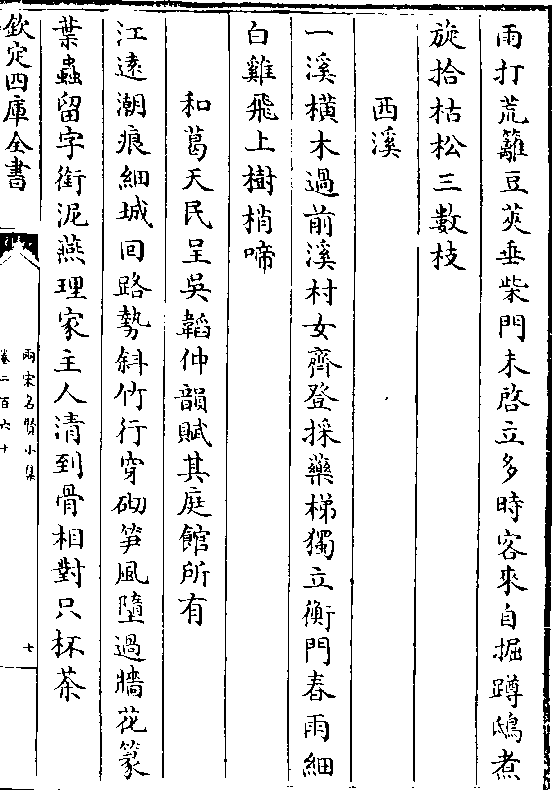 雨打荒籬豆莢垂柴門未啓立多時客來自掘蹲鴟煮
旋拾枯松三數枝
西溪
一溪橫木過前溪村女齊登採藥梯獨立衡門春雨細
白雞飛上樹梢啼
和葛天民呈吳韜仲韻賦其庭館所有
江遠潮痕細城回路勢斜竹行穿砌笋風墮過牆花篆
葉蟲留字銜泥燕理家主人清到骨相對只杯茶
欽定四庫全書
兩宋名賢小集
卷二百六十
七